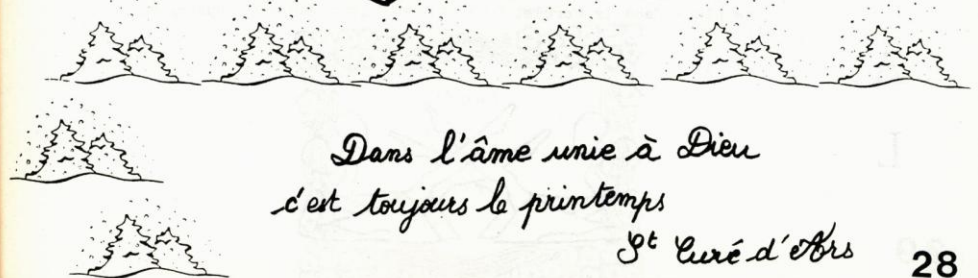 Dans l'âme unie à Dieu
c'est toujours le printemps
St Curé d'Ars
28